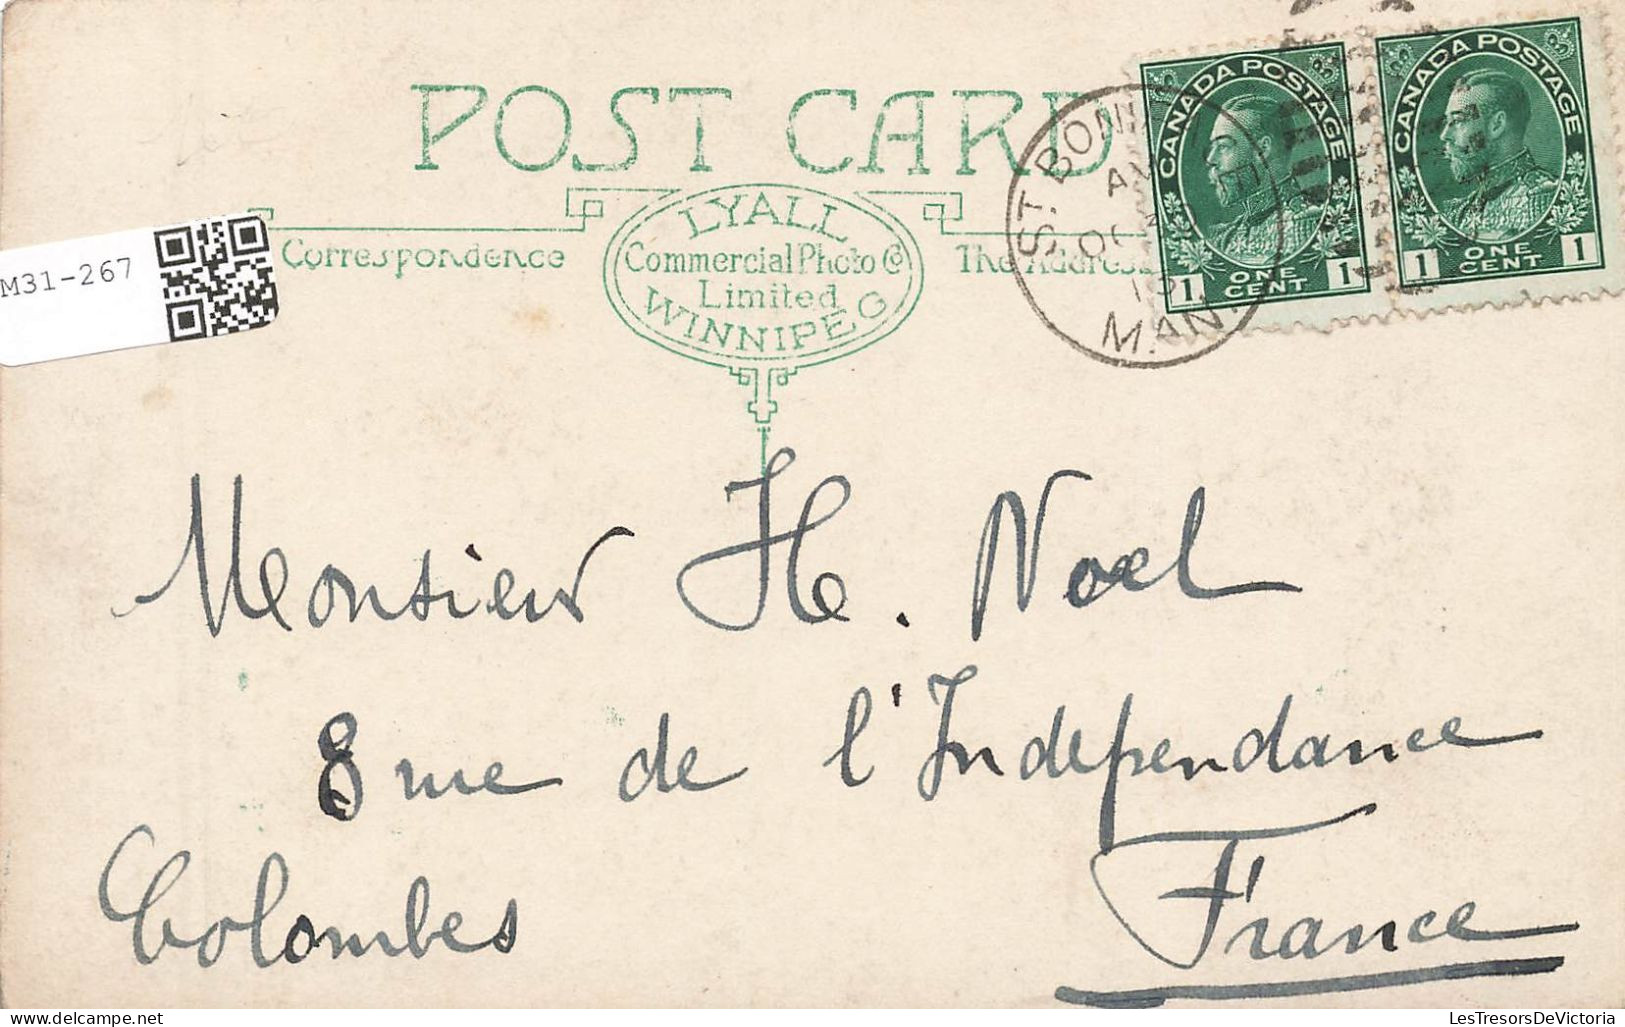 POST CARD
LYALL
Commercial Photo Co
Limited
WINNIPEG
Correspondence
The Address
M31-267
CANADA POSTAGE
1 ONE CENT 1
CANADA POSTAGE
1 ONE CENT 1
ST. BONI
AM
OC
MAN
Monsieur H. Noel
8 rue de l'Independance
Colombes
France
LesTresorsDeVictoria
delcampe.net